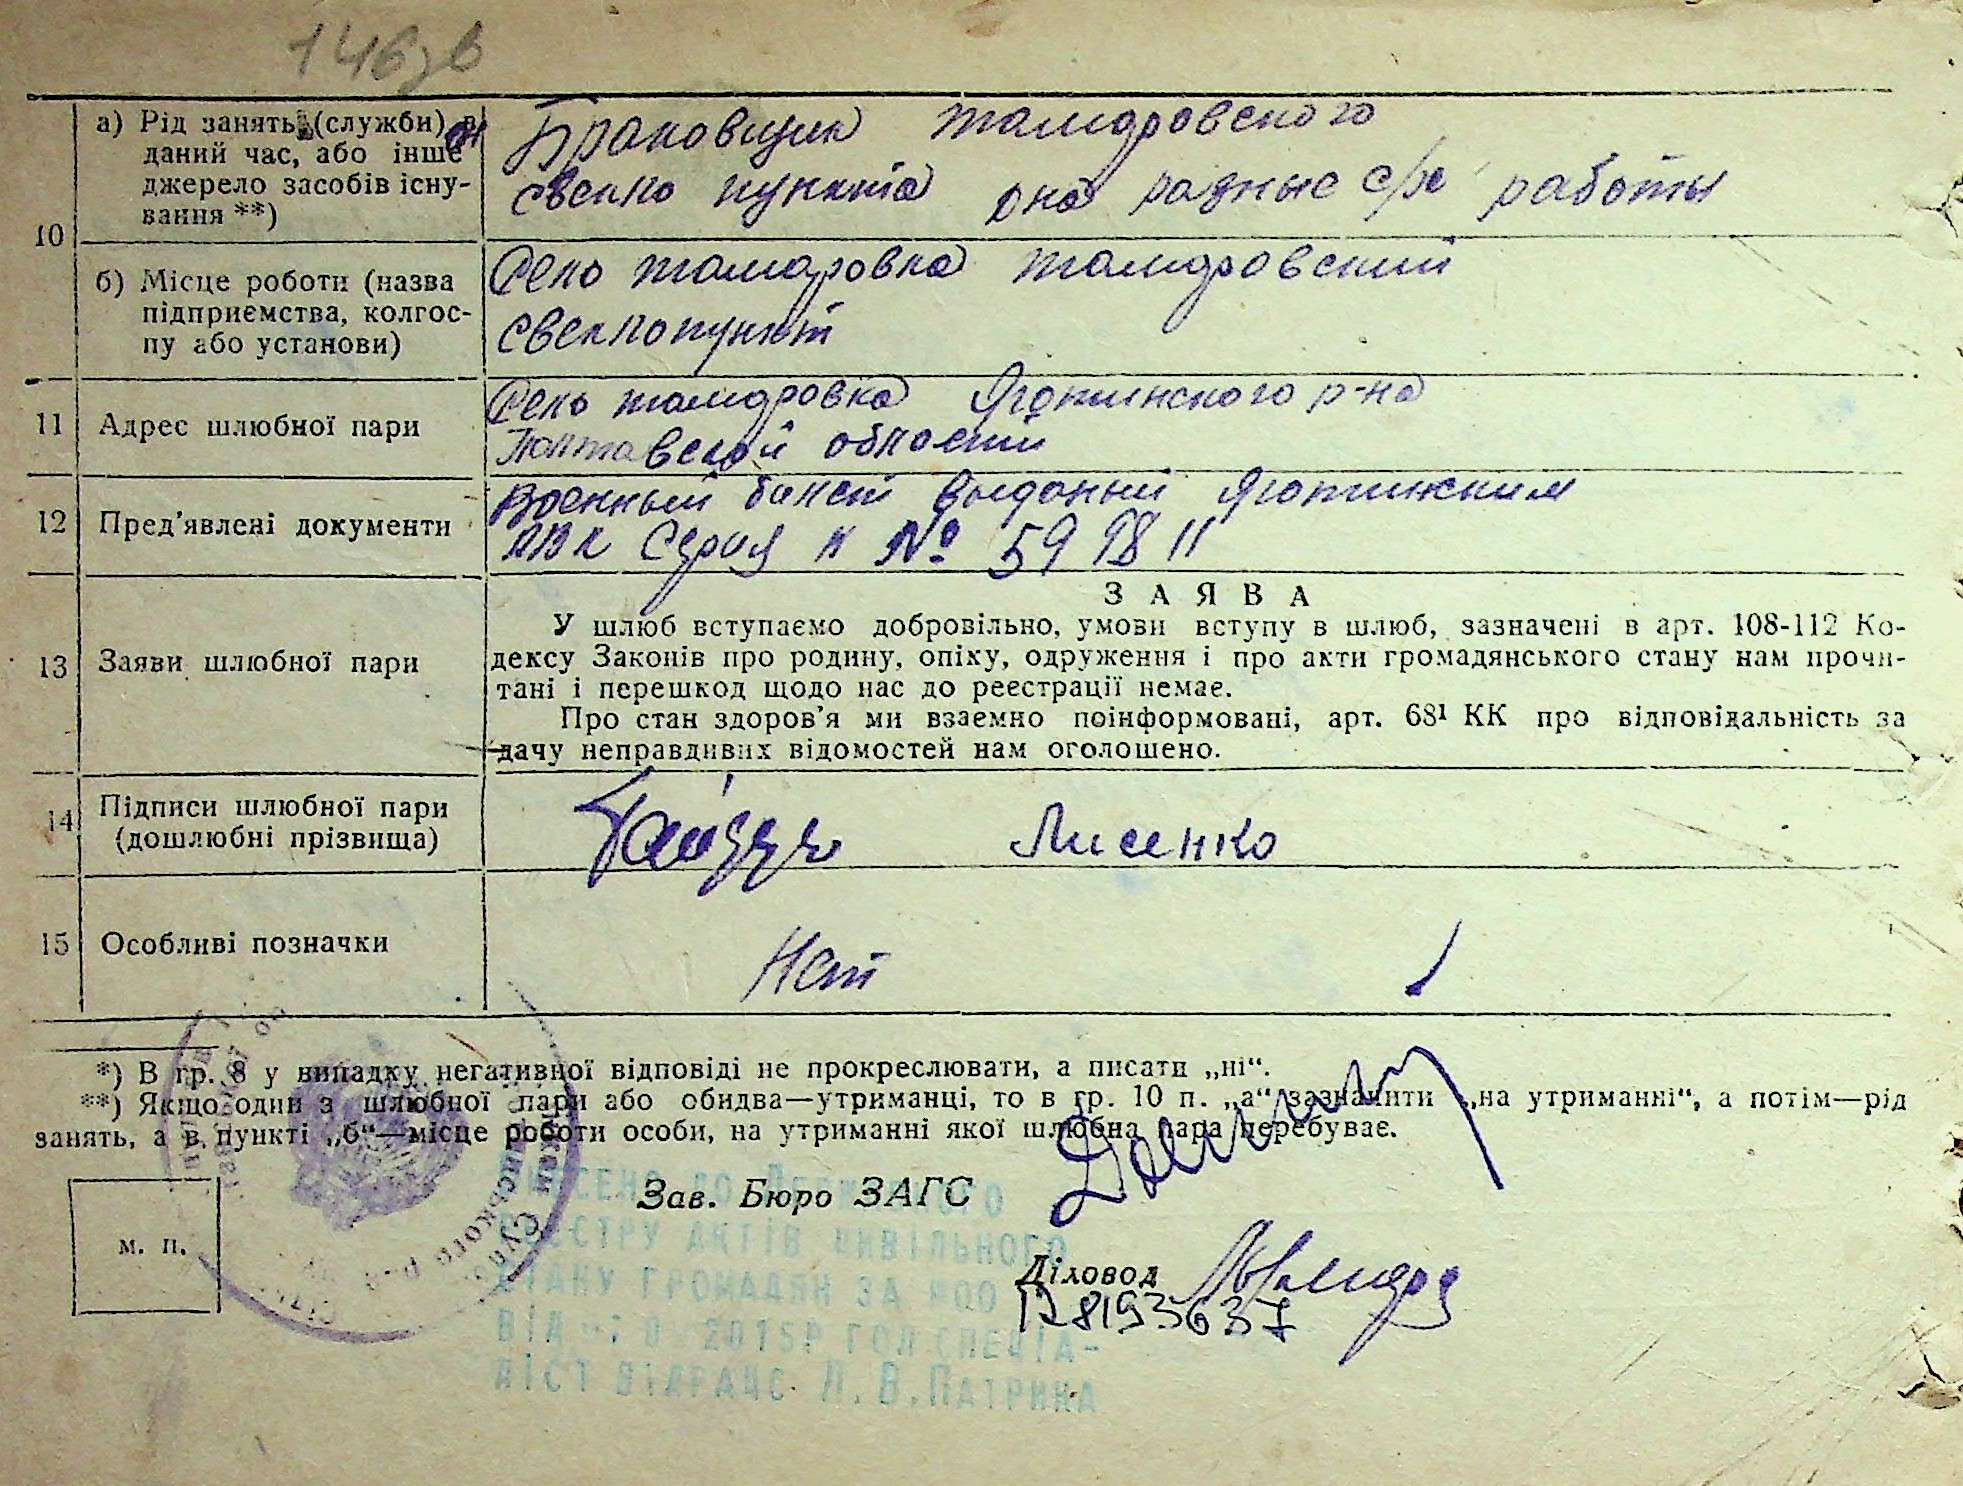 146зв
а) Рід занять (службн) в
даний час, або інше
джерело засобів існу-
вання **)
он
Браковщик Тамаровского
свекло пункта она разные с/х работы
10
б) Місце роботи (назва
підприємства, колгос-
пу або установи)
Село Тамаровка Тамаровский
свеклопункт
11
Адрес шлюбної пари
Село Тамаровка Яготинского р-на
Полтавской области
12
Пред'явлені документи
Военный билет выданый Яготинским
РВК Серия № 59 98 11
13
Заяви шлюбної пари
ЗАЯВА
У шлюб вступаємо добровільно, умови вступу в шлюб, зазначені в арт. 108-112 Ко-
дексу Законів про родину, опіку, одруження і про акти громадянського стану нам прочи-
тані і перешкод щодо нас до реєстрації немає.
Про стан здоров'я ми взаємно поінформовані, арт. 68¹ КК про відповідальність за
дачу неправдивих відомостей нам оголошено.
14
Підписи шлюбної пари
(дошлюбні прізвища)
Лисенко
15
Особливі позначки
Нет
*) В гр. 8 у випадку негативної відповіді не прокреслювати, а писати „ні“.
**) Якщо один з шлюбної пари або обидва—утриманці, то в гр. 10 п. „а“ зазначити „на утриманні“, а потім—рід
занять, а в пункті „б“—місце роботи особи, на утриманні якої шлюбна пара перебуває.
Зав. Бюро ЗАГС
м. п.
Діловод
128193637
Внесено до Державного
реєстру актів цивільного
стану громадян за №00
від 2015р гол.спеціа-
ліст відрацс Н.В.Патрика